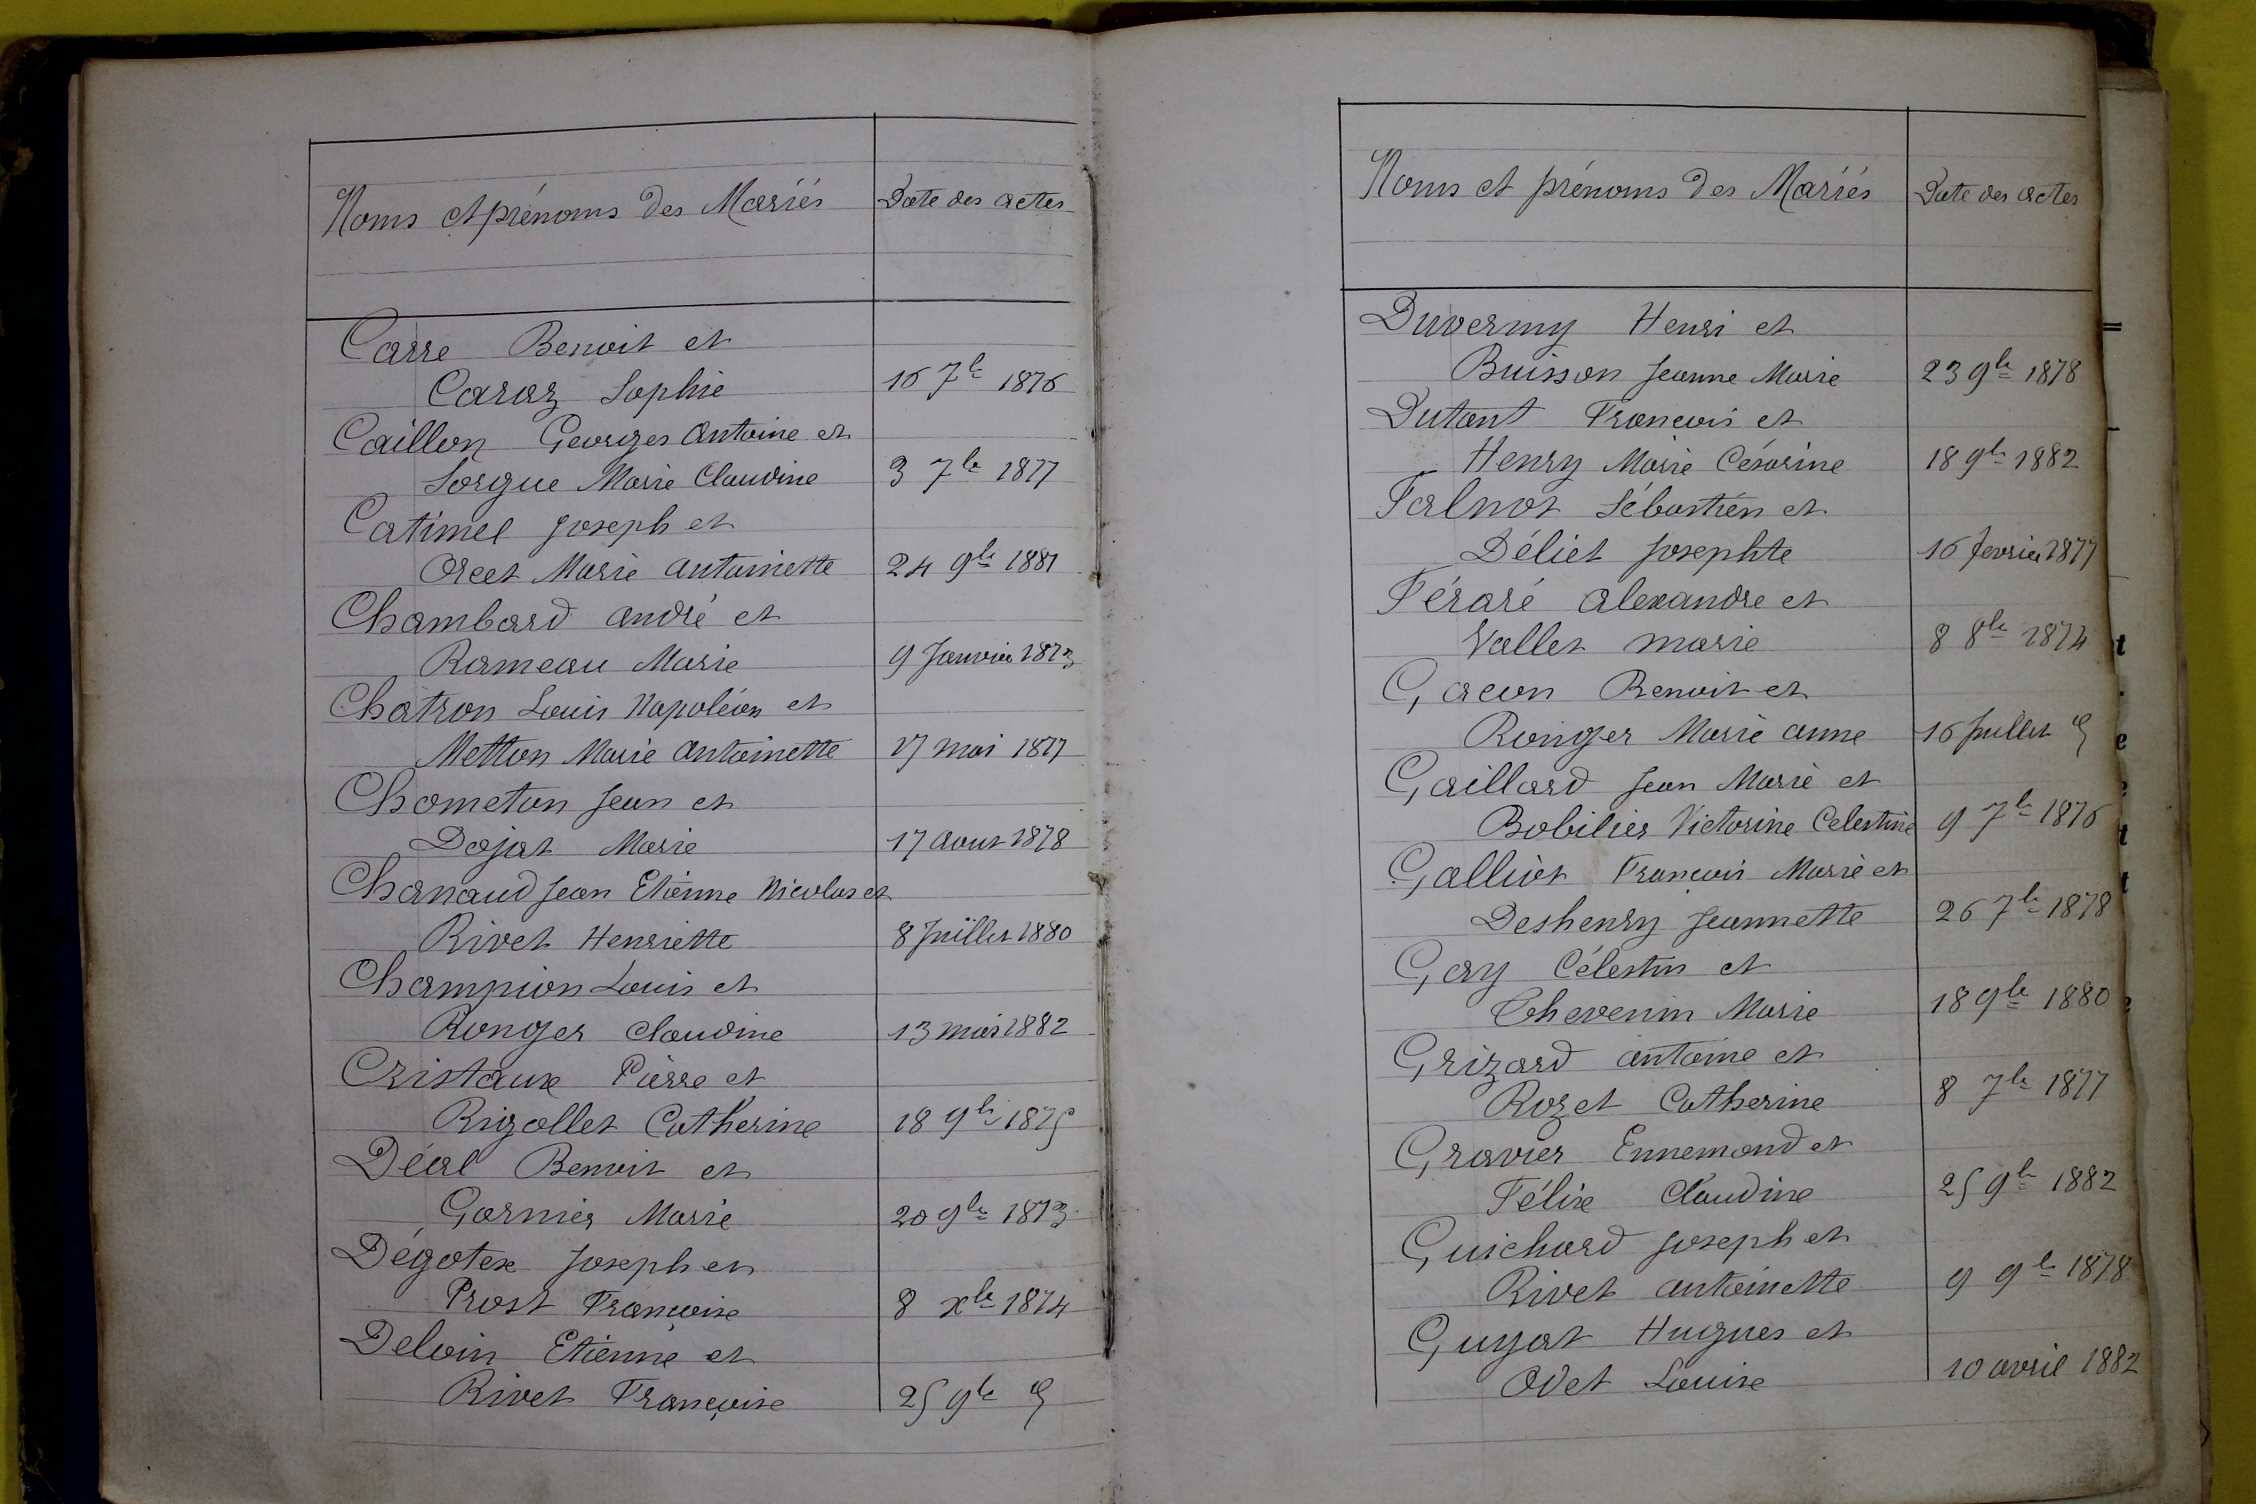 Noms et prénoms des Mariés Date des actes
Carre Benoit et
Caraz Sophie 16 7be 1876
Caillon Georges Antoine et
Lorgue Marie Claudine 3 7be 1877
Catimel Joseph et
Orcet Marie Antoinette 24 9be 1881
Chambard André et
Rameau Marie 9 Janvier 1873
Chatron Louis Napoléon et
Metton Marie Antoinette 17 mai 1877
Chometon Jean et
Dojat Marie 17 Aout 1878
Chanaud Jean Etienne Nicolas et
Rivet Henriette 8 Juillet 1880
Champion Louis et
Ronger Claudine 13 mai 1882
Cristaux Pierre et
Rigollet Catherine 18 9be 1875
Déal Benoit et
Garnier Marie 20 9be 1873
Dégotex Joseph et
Prost Françoise 8 xbe 1874
Deloin Etienne et
Rivet Françoise 25 9be
Noms et prénoms des Mariés Date des actes
Duverny Henri et
Buisson Jeanne Marie 23 9be 1878
Dutant Francois et
Henry Marie Césarine 18 9be 1882
Falnot Sébastien et
Déliet Josephte 16 fevrier 1877
Féraré Alexandre et
Vallet marie 8 8be 1874
Gacon Benoit et
Ronger Marie Anne 16 Juillet
Gaillard Jean Marie et
Bobilier Victorine Celestine 9 7be 1876
Galliet François Marie et
Deshenry Jeannette 26 7be 1878
Gay Célestin et
Thevenin Marie 18 9be 1880
Grizard Antoine et
Rozet Catherine 8 7be 1877
Gravier Ennemond et
Félix Claudine 25 9be 1882
Guichard Joseph et
Rivet Antoinette 9 9be 1878
Guyat Hugues et
Odet Louise 10 avril 1882